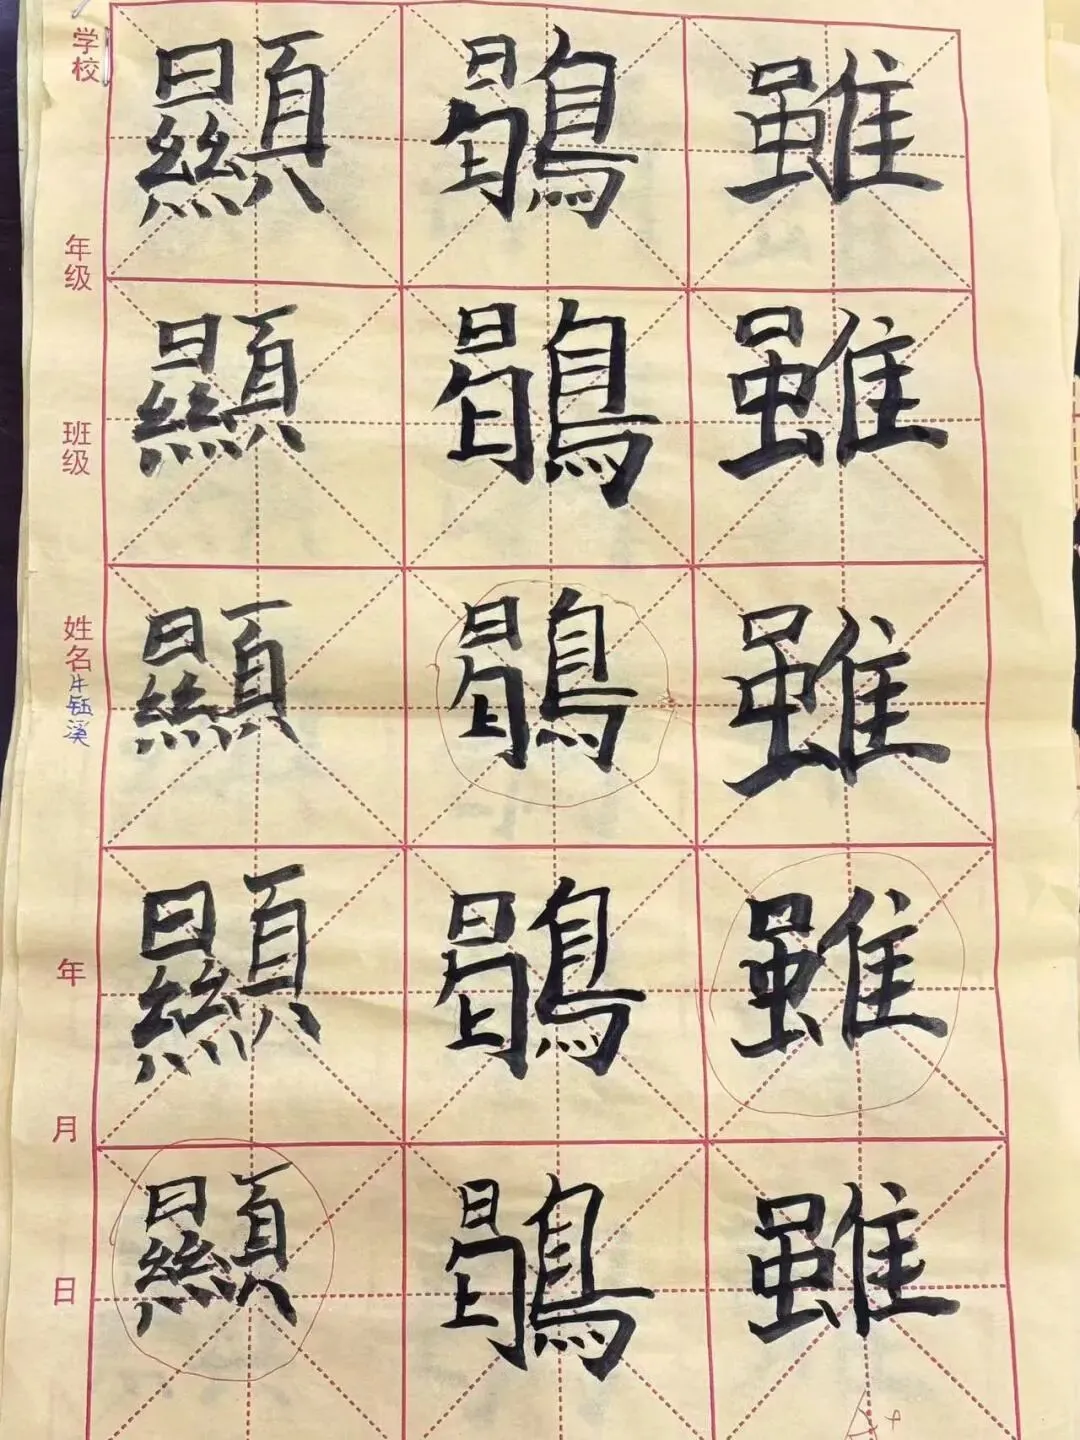 学校
年级
班级
姓名 牛钰溪
年
月
日
顯 鶡 雖
顯 鶡 雖
顯 鶡 雖
顯 鶡 雖
顯 鶡 雖
A+